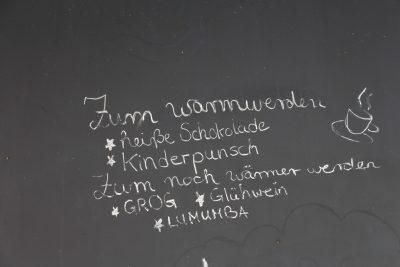 Zum warmwerden
* heiße Schokolade
* Kinderpunsch
Zum noch wärmer werden
* GROG * Glühwein
* LUMUMBA